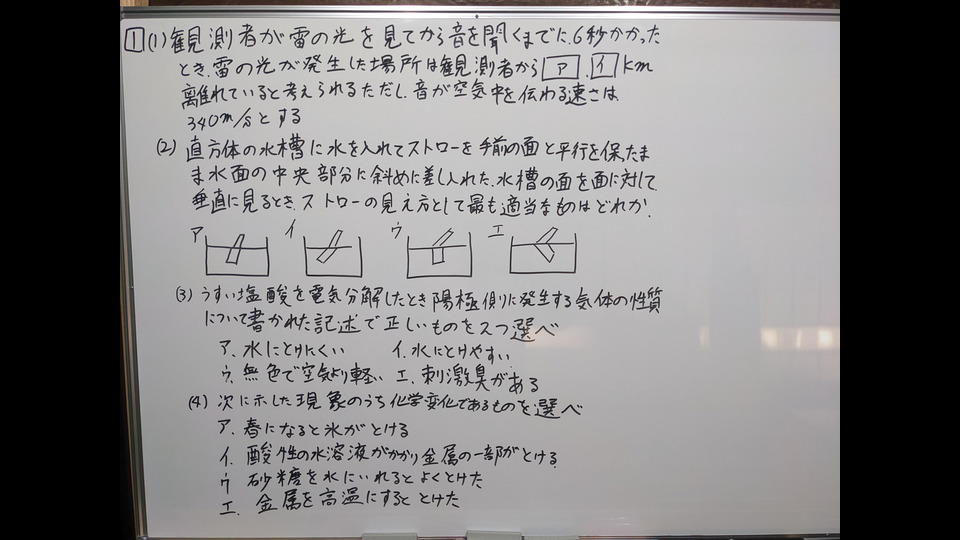 1 (1) 観測者が雷の光を見てから音を聞くまでに、6秒かかった
とき、雷の光が発生した場所は観測者から ア . イ km
離れていると考えられるただし、音が空気中を伝わる速さは
340m/sとする
(2) 直方体の水槽に水を入れてストローを手前の面と平行を保ったま
ま水面の中央部分に斜めに差し入れた、水槽の面を面に対して
垂直に見るとき、ストローの見え方として最も適当なものはどれか.
ア イ ウ エ
(3) うすい塩酸を電気分解したとき陽極側に発生する気体の性質
について書かれた記述で正しいものを2つ選べ
ア、水にとけにくい イ、水にとけやすい
ウ、無色で空気より軽い エ、刺激臭がある
(4) 次に示した現象のうち化学変化であるものを選べ
ア、春になると氷がとける
イ、酸性の水溶液がかかり金属の一部がとける
ウ 砂糖を水にいれるとよくとけた
エ、金属を高温にするととけた